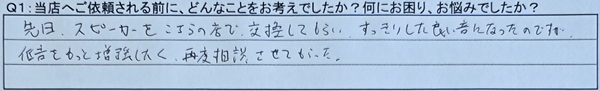 Q1:当店へご依頼される前に、どんなことをお考えでしたか?何にお困り、お悩みでしたか?
先日、スピーカーをこちらの店で、交換してもらい、すっきりした良い音になったのですが
低音をもっと増強したく、再度相談させてもらった。